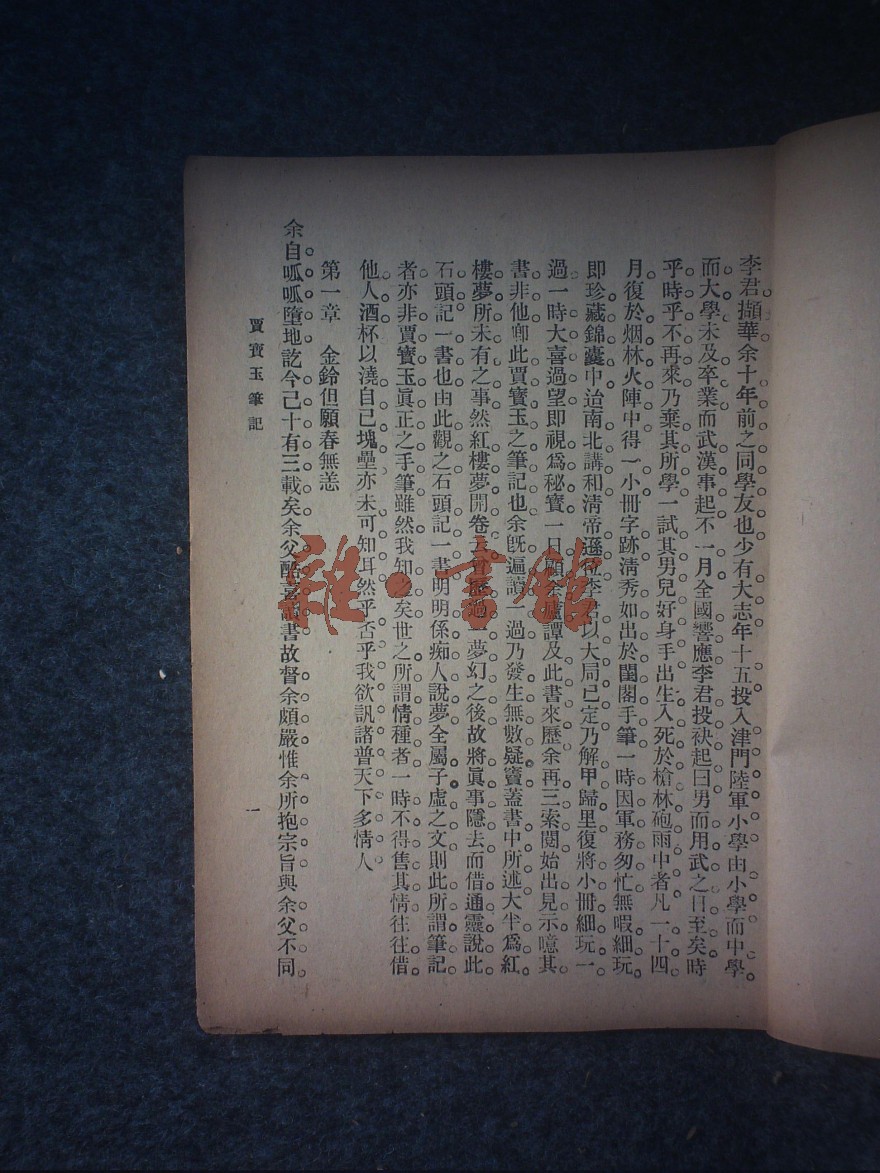 李君擷華余十年前之同學友也少有大志年十五投入津門陸軍小學由小學而中學
而大學未及卒業而武漢事起不一月全國響應李君投袂起曰男而用武之日至矣時
乎時乎不再來乃棄其所學一試其男兒好身手出生入死於槍林砲雨中者凡一十四
月復於烟林火陣中得一小冊字跡清秀如出於閨閣手筆一時因軍務匆忙無暇細玩
即珍藏錦囊中迨南北講和清帝遜位李君以大局已定乃解甲歸里復將小冊細玩一
過一時大喜過望即視爲秘寶一日顧余廬譚及此書來歷余再三索閱始出見示噫其
書非他卽此賈寶玉之筆記也余旣遍讀一過乃發生無數疑竇蓋書中所述大半爲紅
樓夢所未有之事然紅樓夢開卷云曾歷過一夢幻之後故將眞事隱去而借通靈說此
石頭記一書也由此觀之石頭記一書明明係痴人說夢全屬子虛之文則此所謂筆記
者亦非賈寶玉眞正之手筆雖然我知之矣世之所謂情種者一時不得售其情往往借
他人酒杯以澆自已塊壘亦未可知耳然乎否乎我欲訊諸普天下多情人
第一章 金鈴但願春無恙
余自呱呱墮地訖今已十有三載矣余父酷喜讀書故督余頗嚴惟余所抱宗旨與余父不同
賈寶玉筆記 一
雜·書館